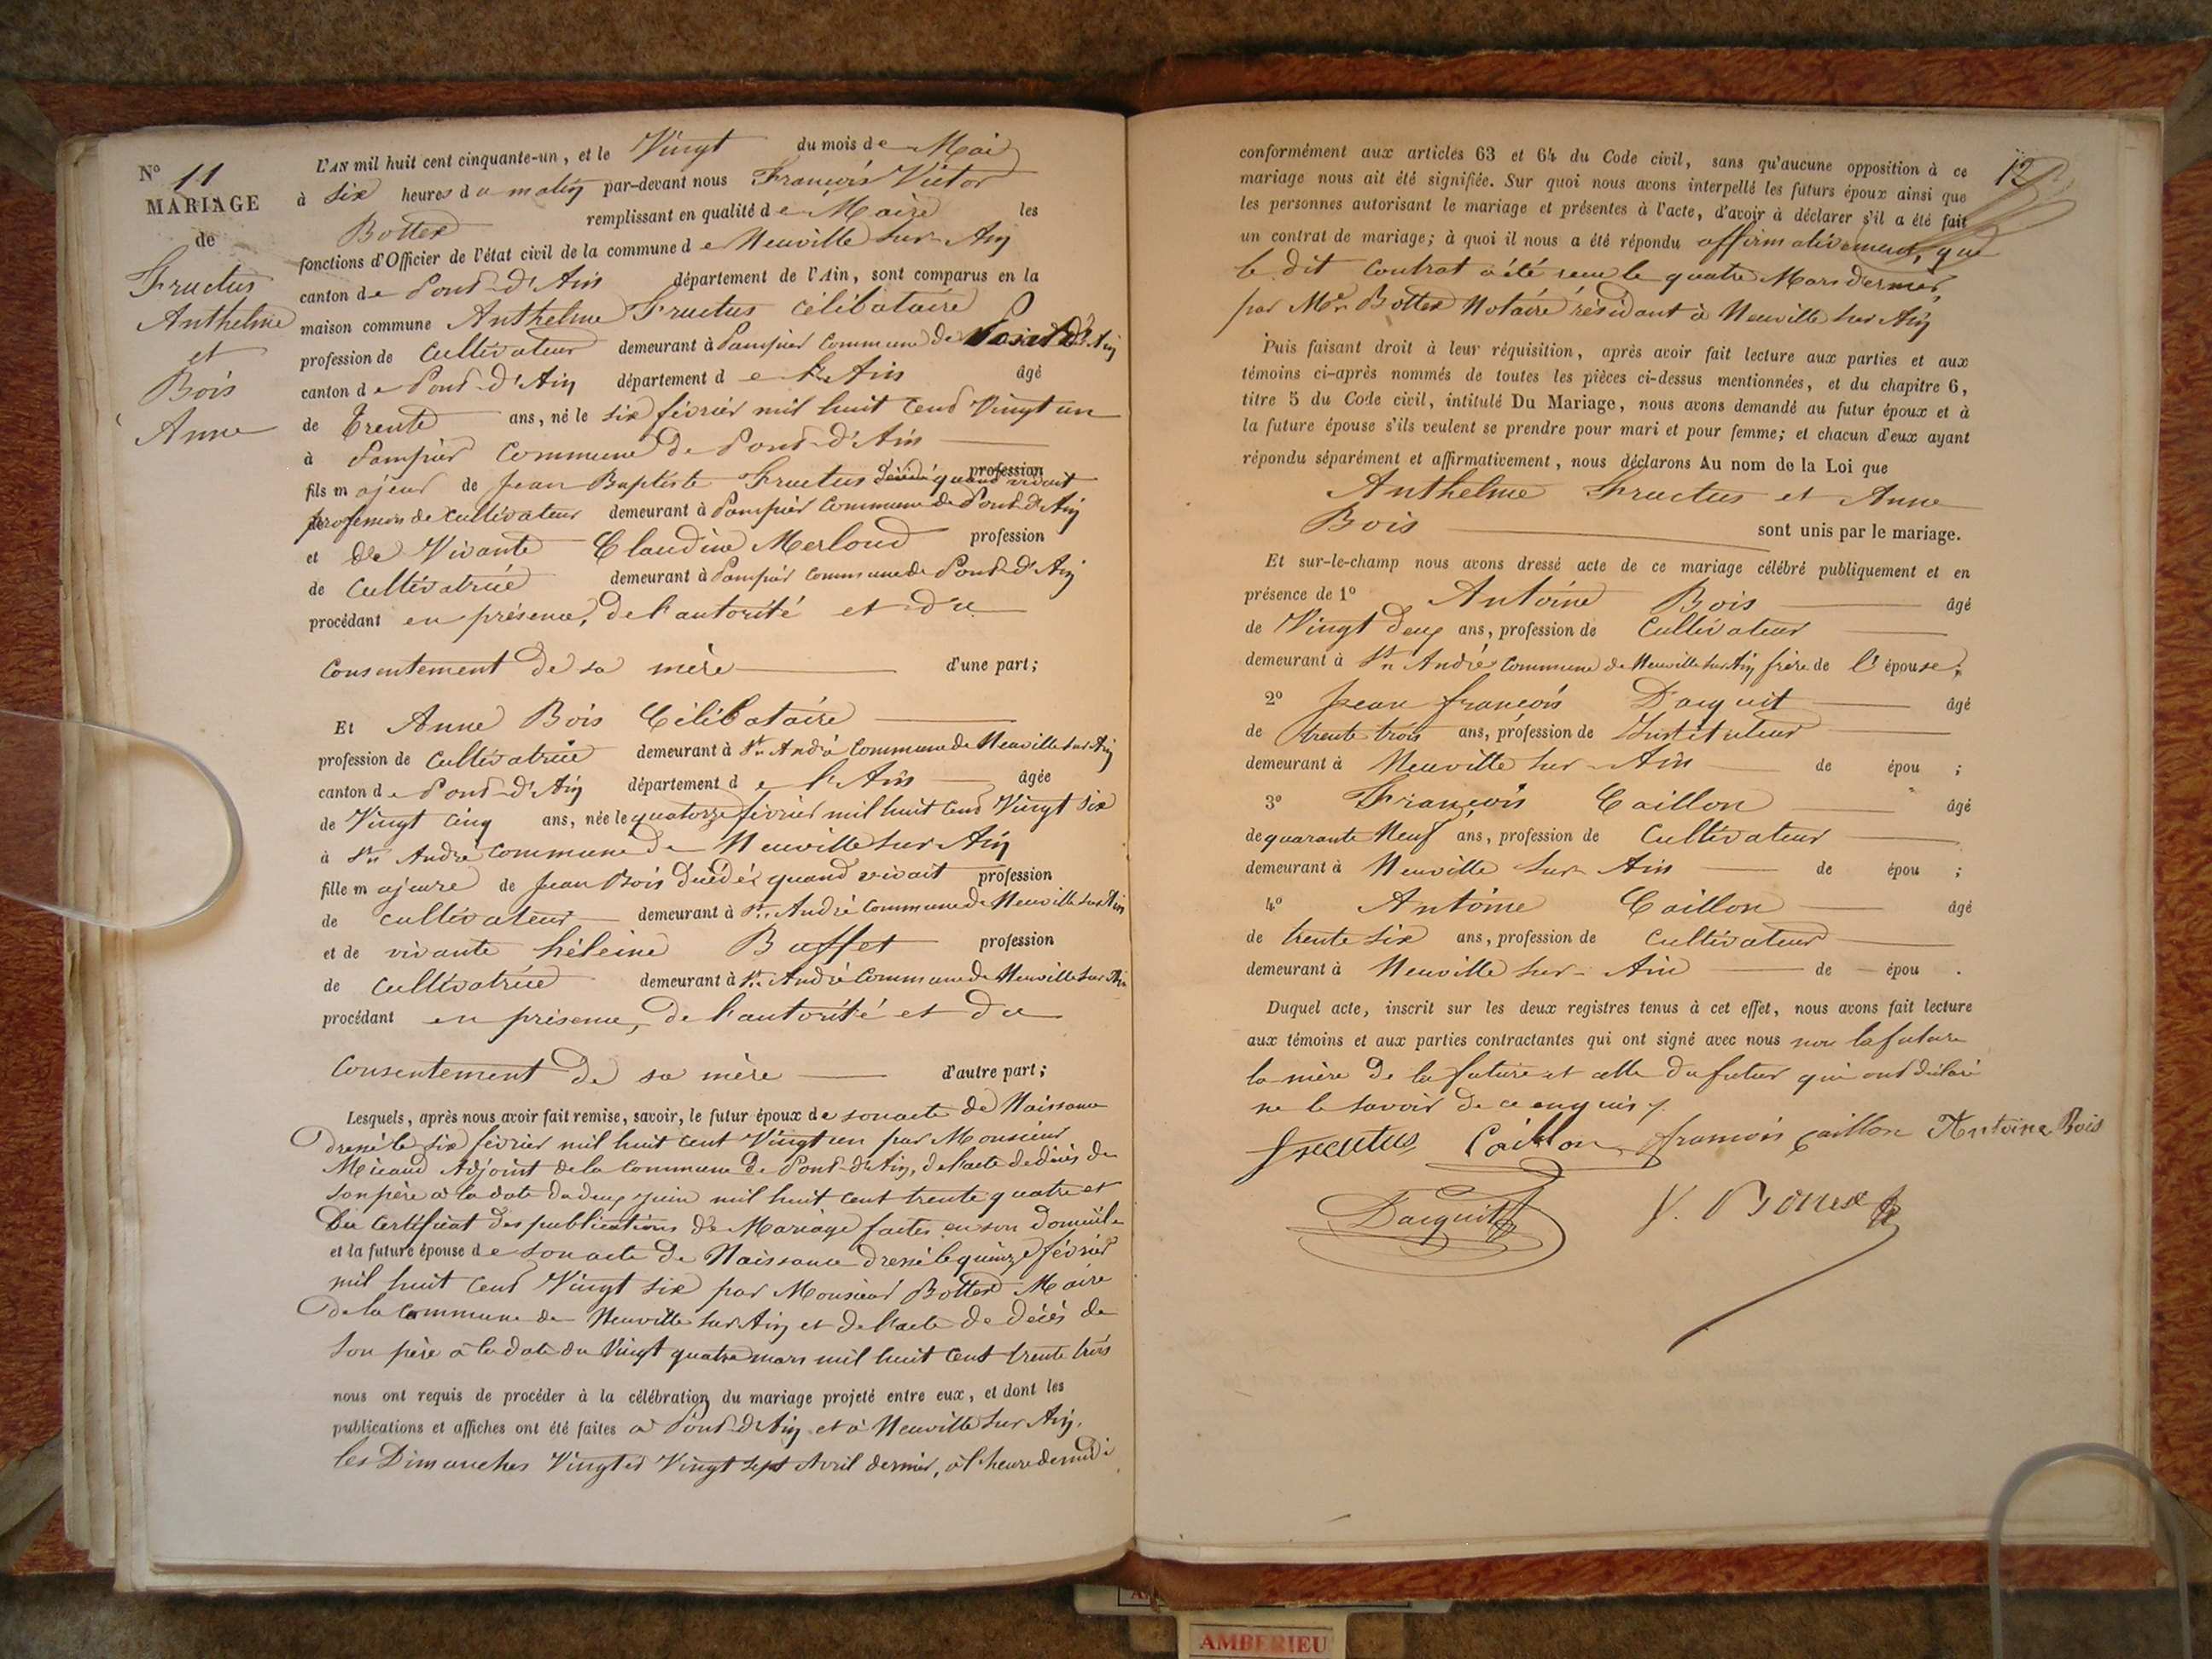 N° 11
MARIAGE
de
Fructus
Anthelme
et
Bois
Anne
L'AN mil huit cent cinquante-un, et le Vingt du mois de Mai
à six heures du matin par-devant nous François Victor
Bottex remplissant en qualité de Maire les
fonctions d'Officier de l'état civil de la commune de Neuville sur Ain
canton de Pont-d'Ain département de l'Ain, sont comparus en la
maison commune Anthelme Fructus célibataire
profession de cultivateur demeurant à Pampier commune de Pont d'Ain
canton de Pont-d'Ain département de l'Ain âgé
de trente ans, né le six février mil huit cent vingt un
à Pampier commune de Pont-d'Ain
fils majeur de Jean Baptiste Fructus décédé quand vivait profession
profession de cultivateur demeurant à Pampier commune de Pont-d'Ain
et de Vivante Claudine Merloud profession
de cultivatrice demeurant à Pampier commune de Pont-d'Ain
procédant en présence, de l'autorité et du
consentement de sa mère d'une part;
Et Anne Bois Célibataire
profession de cultivatrice demeurant à St André commune de Neuville sur Ain
canton de Pont-d'Ain département de l'Ain âgée
de Vingt cinq ans, née le quatorze février mil huit cent vingt six
à St André commune de Neuville sur Ain
fille majeure de Jean Bois décédé quand vivait profession
de cultivateur demeurant à St André commune de Neuville sur Ain
et de vivante héleine Buffet profession
de cultivatrice demeurant à St André commune de Neuville sur Ain
procédant en présence, de l'autorité et du
consentement de sa mère d'autre part;
Lesquels, après nous avoir fait remise, savoir, le futur époux de son acte de Naissance
dressé le six février mil huit cent vingt un par Monsieur
Micaud Adjoint de la commune de Pont-d'Ain, de l'acte de décès de
son père à la date du deux juin mil huit cent trente quatre et
du certificat des publications de Mariage faites en son domicile
et la future épouse de son acte de Naissance dressé le quinze février
mil huit cent vingt six par Monsieur Bottex Maire
de la commune de Neuville sur Ain et de l'acte de décès de
son père à la date du vingt quatre mars mil huit cent trente trois
nous ont requis de procéder à la célébration du mariage projeté entre eux, et dont les
publications et affiches ont été faites à Pont-d'Ain et à Neuville sur Ain.
les Dimanches Vingt et Vingt sept Avril dernier, à l'heure de midi
12
conformément aux articles 63 et 64 du Code civil, sans qu'aucune opposition à ce
mariage nous ait été signifiée. Sur quoi nous avons interpellé les futurs époux ainsi que
les personnes autorisant le mariage et présentes à l'acte, d'avoir à déclarer s'il a été fait
un contrat de mariage; à quoi il nous a été répondu affirmativement, que
le dit contrat a été reçu le quatre Mars dernier,
par Mr Bottex Notaire résidant à Neuville sur Ain
Puis faisant droit à leur réquisition, après avoir fait lecture aux parties et aux
témoins ci-après nommés de toutes les pièces ci-dessus mentionnées, et du chapitre 6,
titre 5 du Code civil, intitulé Du Mariage, nous avons demandé au futur époux et à
la future épouse s'ils veulent se prendre pour mari et pour femme; et chacun d'eux ayant
répondu séparément et affirmativement, nous déclarons Au nom de la Loi que
Anthelme Fructus et Anne
Bois sont unis par le mariage.
Et sur-le-champ nous avons dressé acte de ce mariage célébré publiquement et en
présence de 1° Antoine Bois âgé
de Vingt deux ans, profession de cultivateur
demeurant à St André commune de Neuville sur Ain frère de l'épouse;
2° Jean françois Dacquit âgé
de trente trois ans, profession de Instituteur
demeurant à Neuville sur-Ain de épou ;
3° François Caillon âgé
de quarante Neuf ans, profession de cultivateur
demeurant à Neuville sur Ain de épou ;
4° Antoine Caillon âgé
de trente six ans, profession de cultivateur
demeurant à Neuville sur-Ain de épou .
Duquel acte, inscrit sur les deux registres tenus à cet effet, nous avons fait lecture
aux témoins et aux parties contractantes qui ont signé avec nous non la future
la mère de la future et celle du futur qui ont déclaré
ne le savoir de ce enquis
fructus Caillon françois caillon Antoine Bois
Dacquit V. Bottex
AMBERIEU